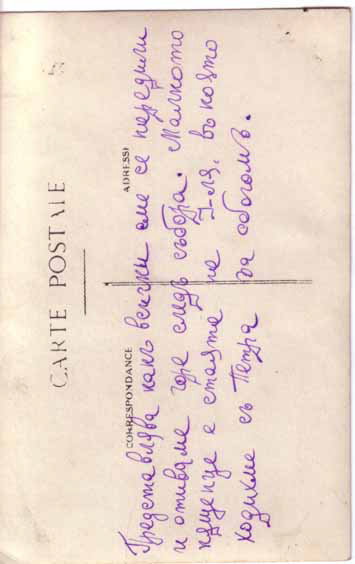 CARTE POSTALE
CORRESPONDANCE
ADRESSE
Представлява какъ всички сме се наредили
и отиваме горе следъ събора. Малкото
къщенце е стаята на Г-ля, въ която
ходихме съ Петра за сбогомъ.